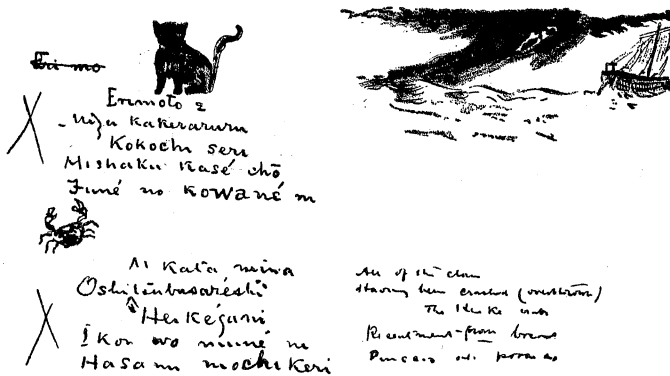 Eri mo
Erimoto e
Mizu kakeraruru
Kokochi seri
Hishaku kasé chō
Funé no kowané ni
kata mina
Oshitsubusaréshi
Heikégani
Ikon wo muné ni
Hasami mochikeri
All of the clan
Having been crushed (overthrown)
The Heike crabs
Resentment from breast
Pincers